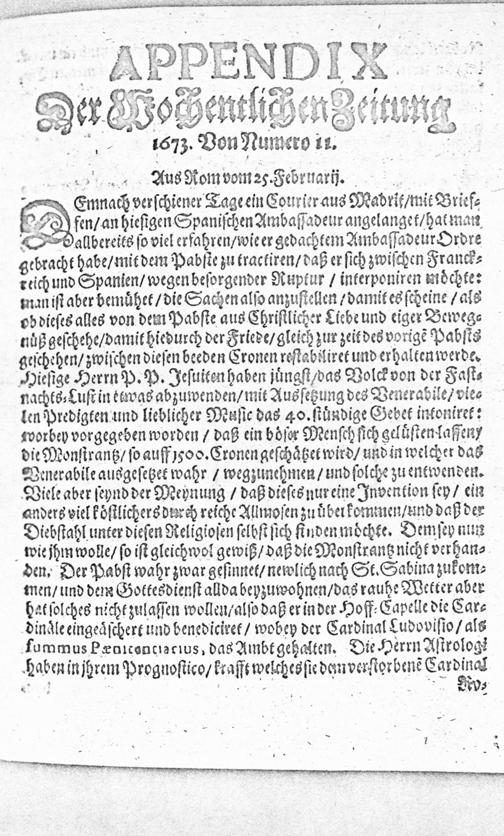 APPENDIX
Der Wochentlichen Zeitung
1673. Von Numero 11.
Aus Rom vom 25. Februarij.
DEmnach verschiener Tage ein Courier aus Madrit/mit Brief-
fen/an hiesigen Spanischen Ambassadeur angelanget/hat man
allbereits so viel erfahren/wie er gedachtem Ambassadeur Ordre
gebracht habe/mit dem Pabste zu tractiren/daß er sich zwischen Franck-
reich und Spanien/wegen besorgender Ruptur / interponiren möchte:
man ist aber bemühet/die Sachen also anzustellen/damit es scheine / als
ob dieses alles von dem Pabste aus Christlicher Liebe und eiger Beweg-
nüß geschehe/damit hiedurch der Friede/gleich zur zeit des vorigē Pabsts
geschehen/zwischen diesen beeden Cronen restabiliret und erhalten werde.
Hiesige Herrn P. P. Jesuiten haben jüngst/das Volck von der Fast-
nachts-Lust in etwas abzuwenden/mit Aussetzung des Venerabile/vie-
len Predigten und lieblicher Music das 40. stündige Gebet intoniret:
worbey vorgegeben worden / daß ein böser Mensch sich gelüsten lassen/
die Monstrantz/so auff 1500. Cronen geschätzet wird/und in welcher das
Venerabile ausgesetzet wahr / wegzunehmen/und solche zu entwenden.
Viele aber seynd der Meynung / daß dieses nur eine Invention sey / ein
anders viel köstlichers durch reiche Allmosen zu überkommen/und daß der
Diebstahl unter diesen Religiosen selbst sich finden möchte. Dem sey nun
wie jhm wolle/so ist gleichwol gewiß/daß die Monstrantz nicht verhan-
den. Der Pabst wahr zwar gesinnet/newlich nach St. Sabina zukom-
men/und dem Gottesdienst allda beyzuwohnen/das rauhe Wetter aber
hat solches nicht zulassen wollen/also daß er in der Hoff-Capelle die Car-
dinäle eingeäschert und benediciret / wobey der Cardinal Ludovisio/als
summus Pœnitentiarius, das Ambt gehalten. Die Herrn Astrologi
haben in jhrem Prognostico/krafft welches sie dem verstorbenē Cardinal
Ro-